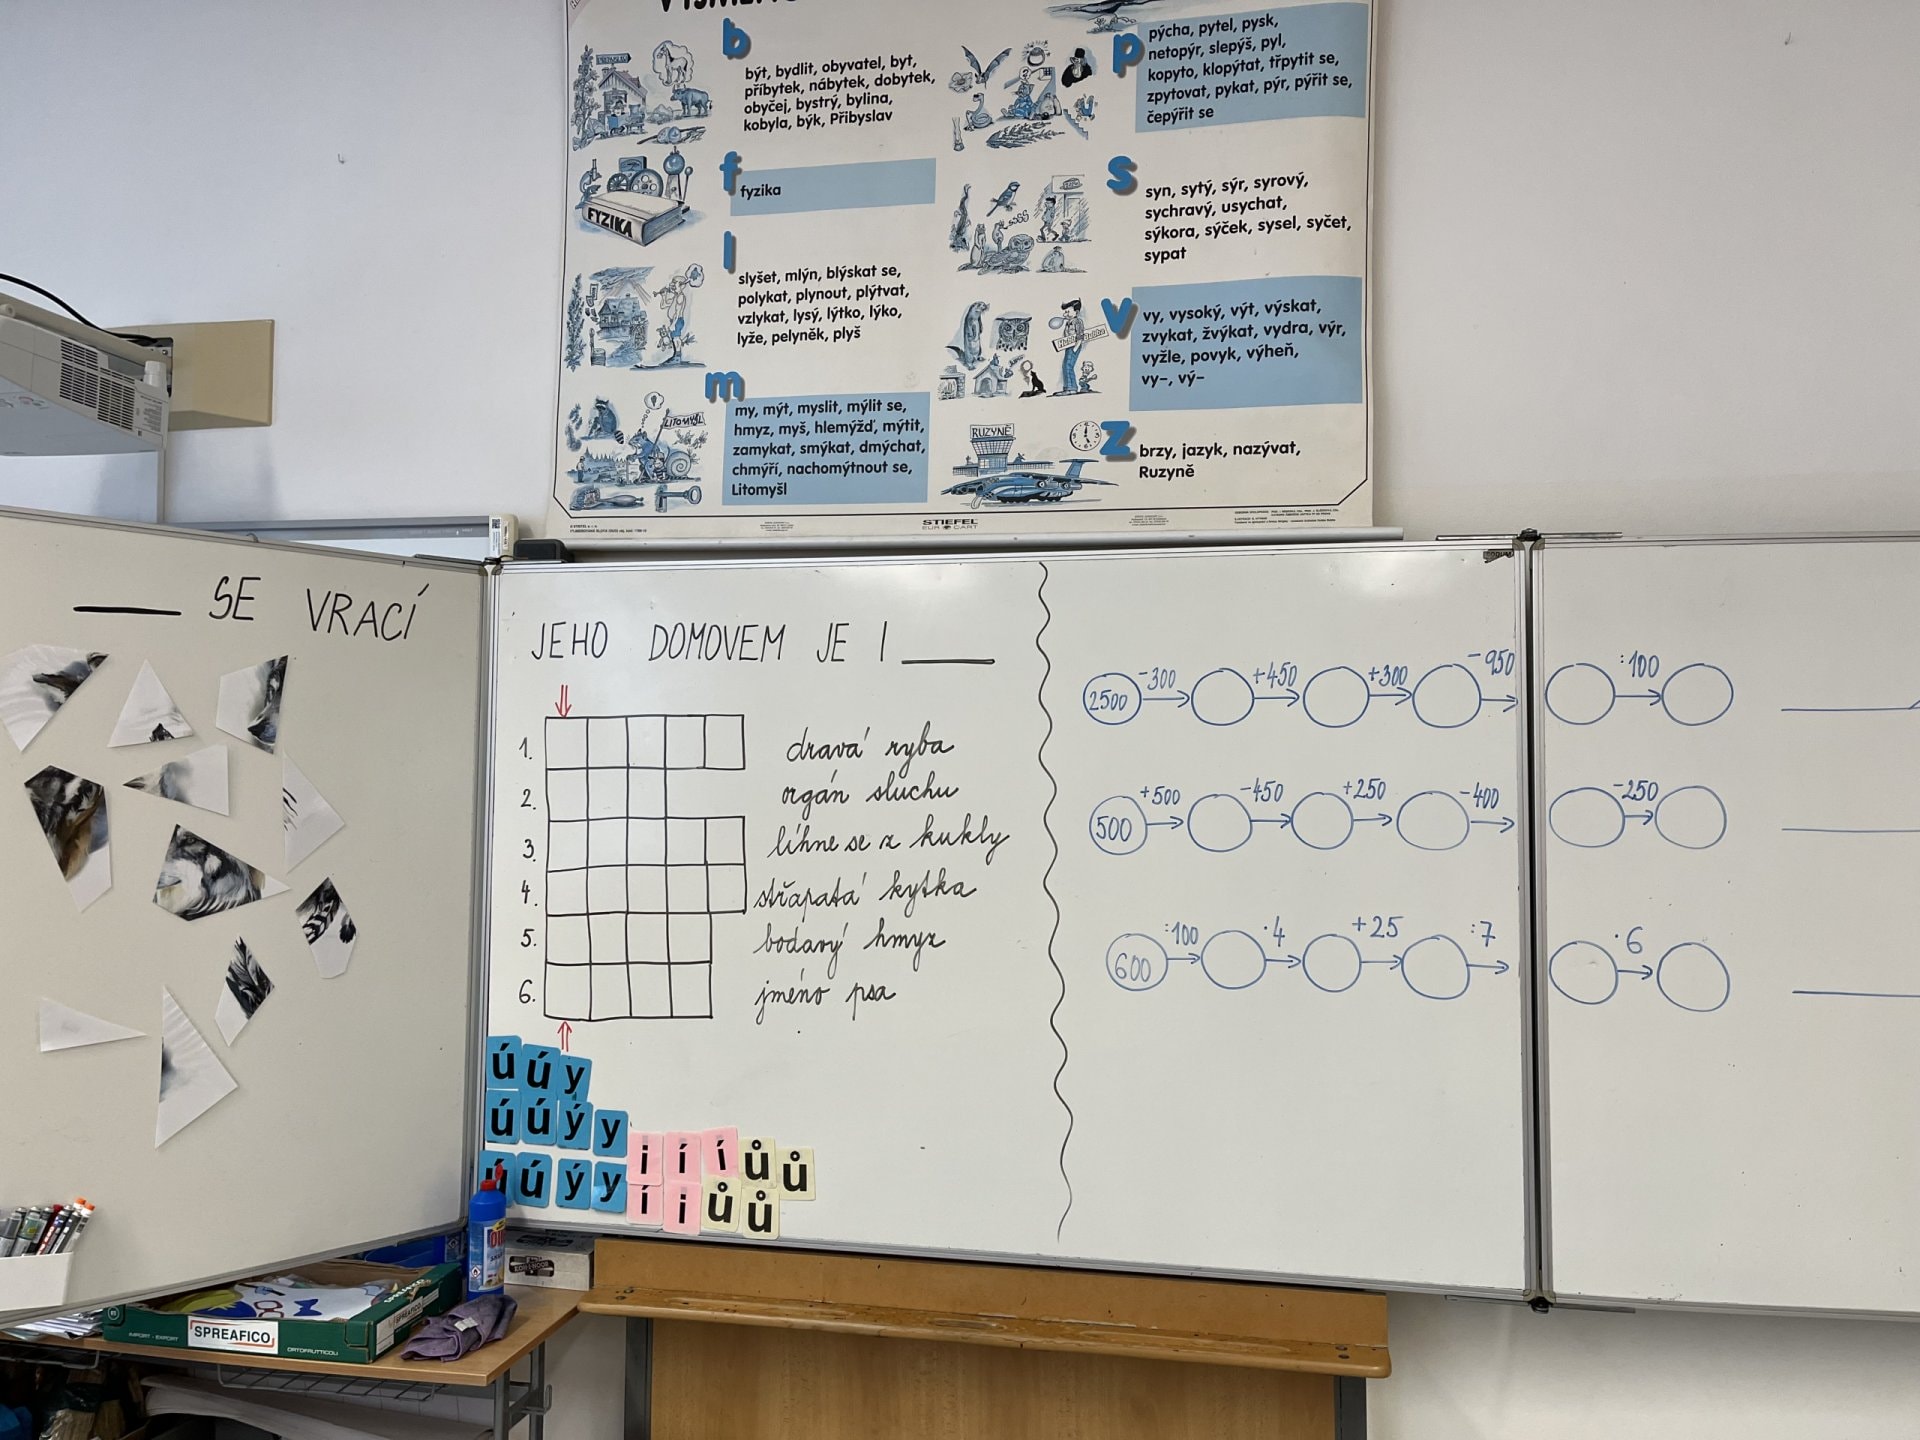 b
být, bydlit, obyvatel, byt,
příbytek, nábytek, dobytek,
obyčej, bystrý, bylina,
kobyla, býk, Přibyslav
f
fyzika
FYZIKA
l
slyšet, mlýn, blýskat se,
polykat, plynout, plýtvat,
vzlykat, lysý, lýtko, lýko,
lyže, pelyněk, plyš
m
my, mýt, myslit, mýlit se,
hmyz, myš, hlemýžď, mýtit,
zamykat, smýkat, dmýchat,
chmýří, nachomýtnout se,
Litomyšl
LITOMYŠL
p
pýcha, pytel, pysk,
netopýr, slepýš, pyl,
kopyto, klopýtat, třpytit se,
zpytovat, pykat, pýr, pýřit se,
čepýřit se
s
syn, sytý, sýr, syrový,
sychravý, usychat,
sýkora, sýček, sysel, syčet,
sypat
v
vy, vysoký, výt, výskat,
zvykat, žvýkat, vydra, výr,
vyžle, povyk, výheň,
vy-, vý-
z
brzy, jazyk, nazývat,
Ruzyně
RUZYNĚ
STIEFEL
EURO CART
___ SE VRACÍ
JEHO DOMOVEM JE I ___
1. dravá ryba
2. orgán sluchu
3. líhne se z kukly
4. střapatá kytka
5. bodavý hmyz
6. jméno psa
2500 -300 +450 +300 -950 :100
500 +500 -450 +250 -400 -250
600 :100 ·4 +25 :7 ·6
ú ú y
ú ú ý y
ú ú ý y
i í í ů ů
í i ů ů
SPREAFICO
IMPORT - EXPORT
ORTOFRUTTICOLI
SPREAFICO
KOH-I-NOOR